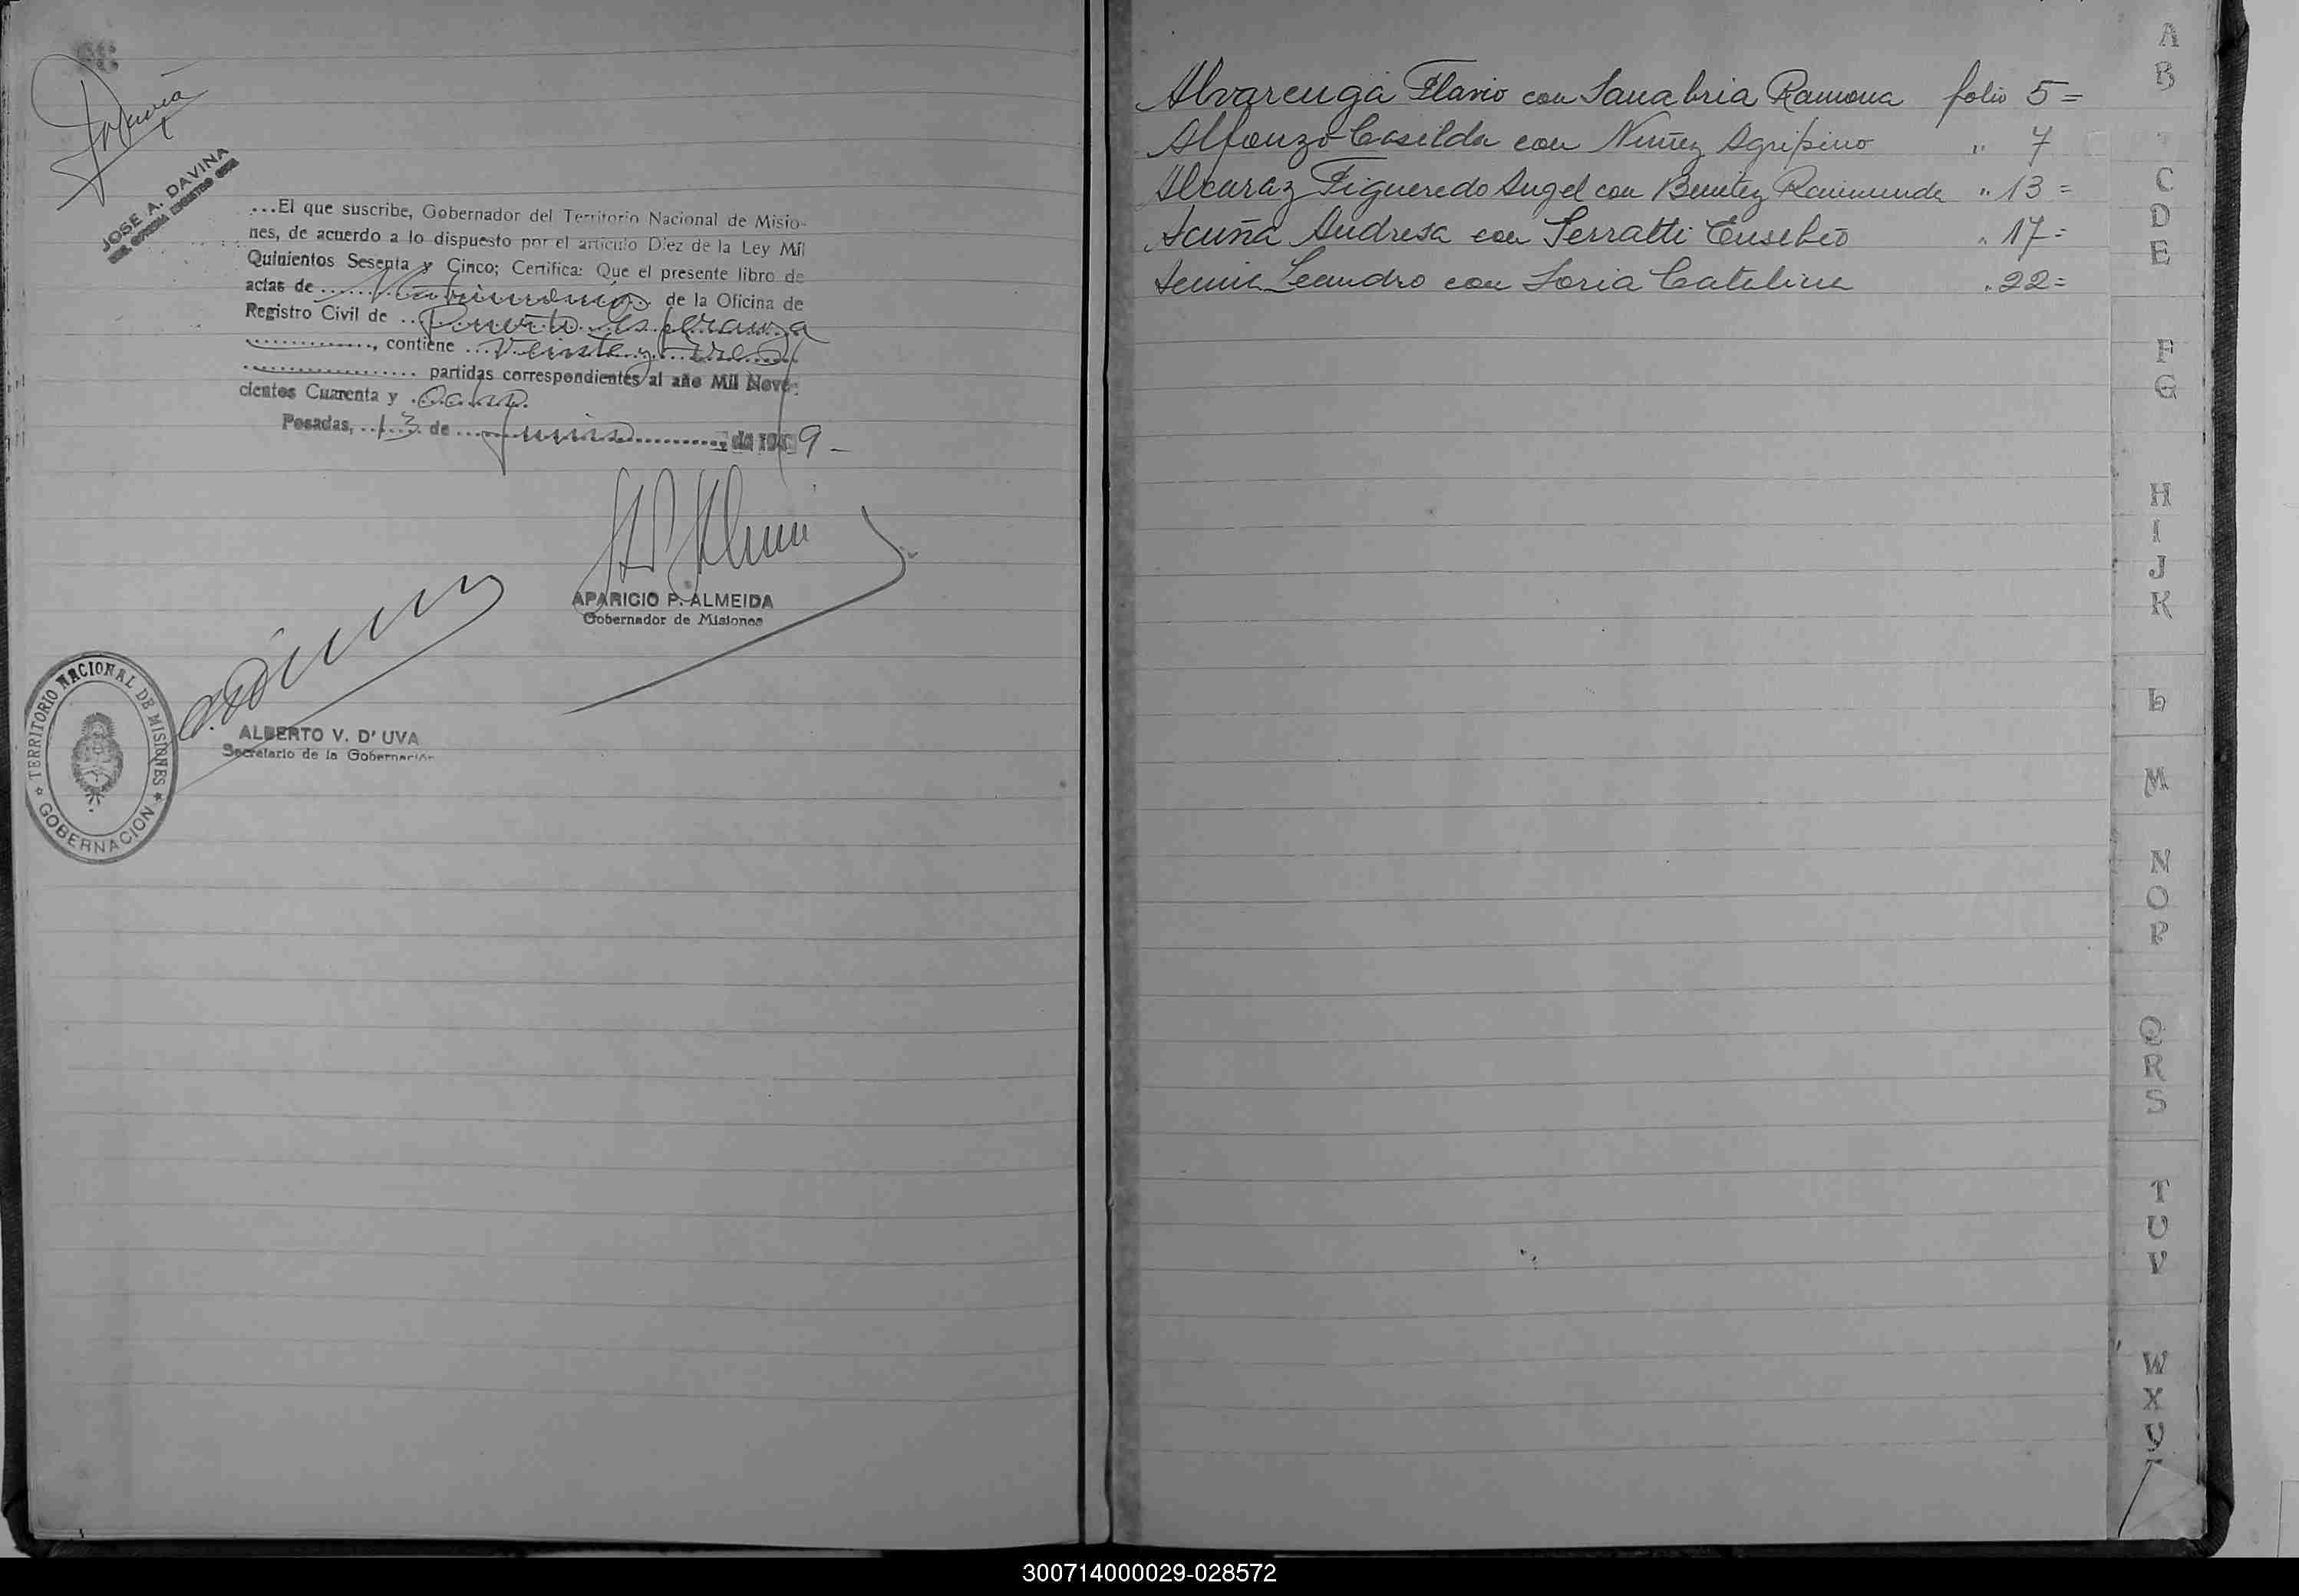 JOSE A. DAVIÑA
...El que suscribe, Gobernador del Territorio Nacional de Misio-
nes, de acuerdo a lo dispuesto por el artículo Diez de la Ley Mil
Quinientos Sesenta y Cinco; Certifica: Que el presente libro de
actas de ...Matrimonios... de la Oficina de
Registro Civil de ...Puerto Esperanza
............, contiene ...Veinte y tres
.................. partidas correspondientes al año Mil Nove-
cientos Cuarenta y .Ocho.
Posadas, ..13. de ...Junio..........., de 1949-
APARICIO P. ALMEIDA
Gobernador de Misiones
ALBERTO V. D' UVA
Secretario de la Gobernación
TERRITORIO NACIONAL DE MISIONES
GOBERNACION
Alvarenga Flavio con Sanabria Ramona folio 5=
Alfonzo Casilda con Nuñez Agripino " 7
Alcaraz Figueredo Angel con Benitez Raimunda " 13=
Acuña Andresa con Serratti Eusebio " 17=
Leandro con Soria Catalina " 22=
A
B
C
D
E
F
G
H
I
J
K
L
M
N
O
P
Q
R
S
T
U
V
W
X
Y
300714000029-028572